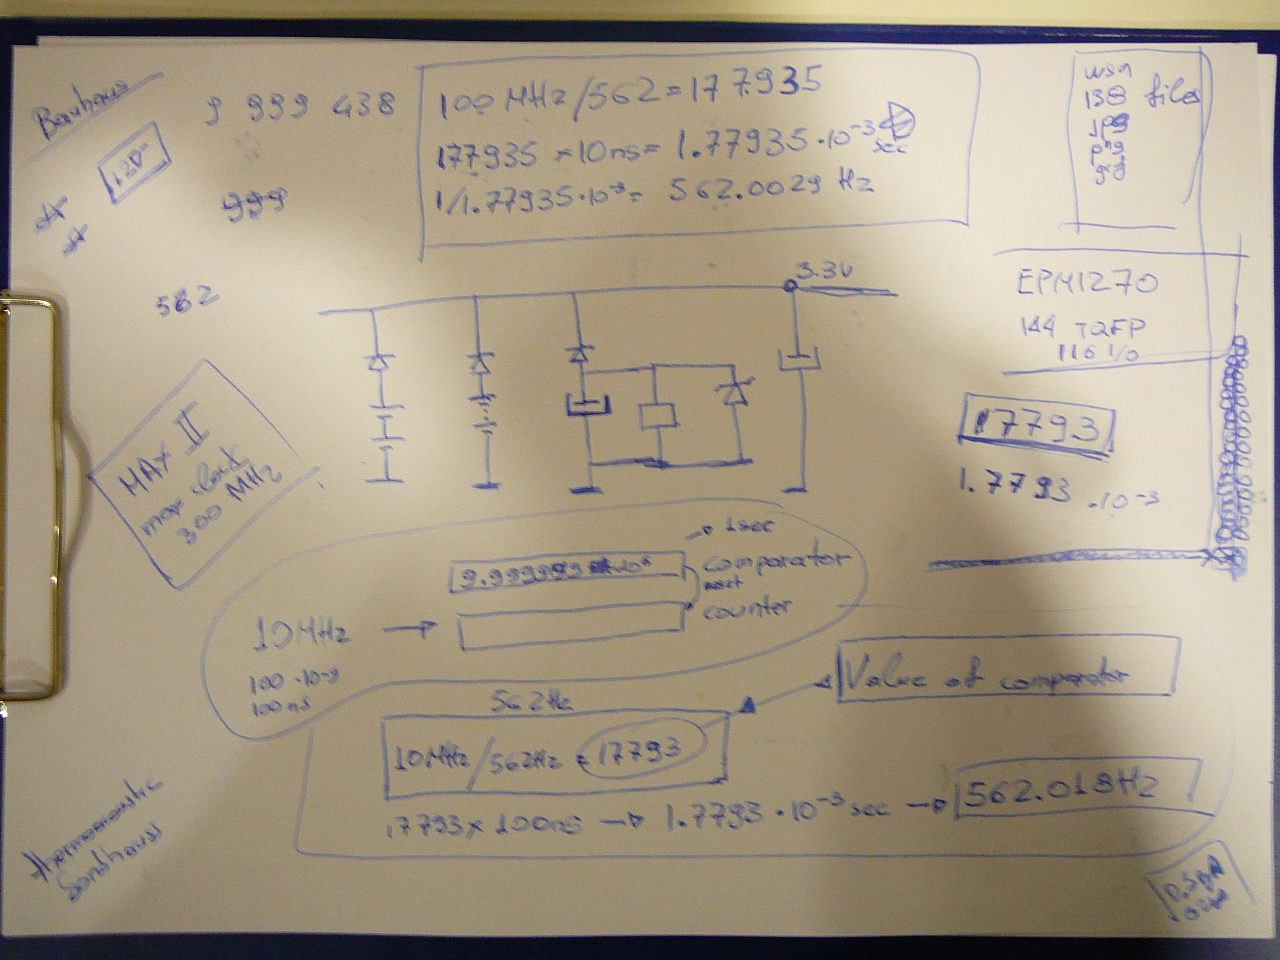 Bauhaus
9 999 438
999
562
100 MHz/562 = 177.935
177935 × 10ns = 1.77935·10⁻³ sec
1/1.77935·10⁻³ = 562.0029 Hz
files
jpg
png
3.3V
EPM1270
144 TQFP
116 I/O
17793
1.7793 .10⁻³
MAX II
max clock
300 MHz
1sec
comparator
next
counter
10MHz →
100·10⁻⁹
100ns
562Hz
10MHz/562Hz = 17793
Value of comparator
17793 × 100ns → 1.7793·10⁻³ sec → 562.018Hz
thermoacoustic
Sondhauss